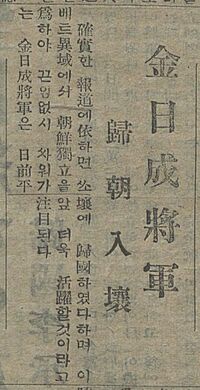 金日成將軍
歸朝入壤
確實한 報道에依하면 쏘
베드異域에서 朝鮮獨立을
爲하야 끈임없시 싸워오
는 金日成將軍은 日前平
壤에 歸國하였다하며 이
앞 더욱 活躍할것이라고
注目된다